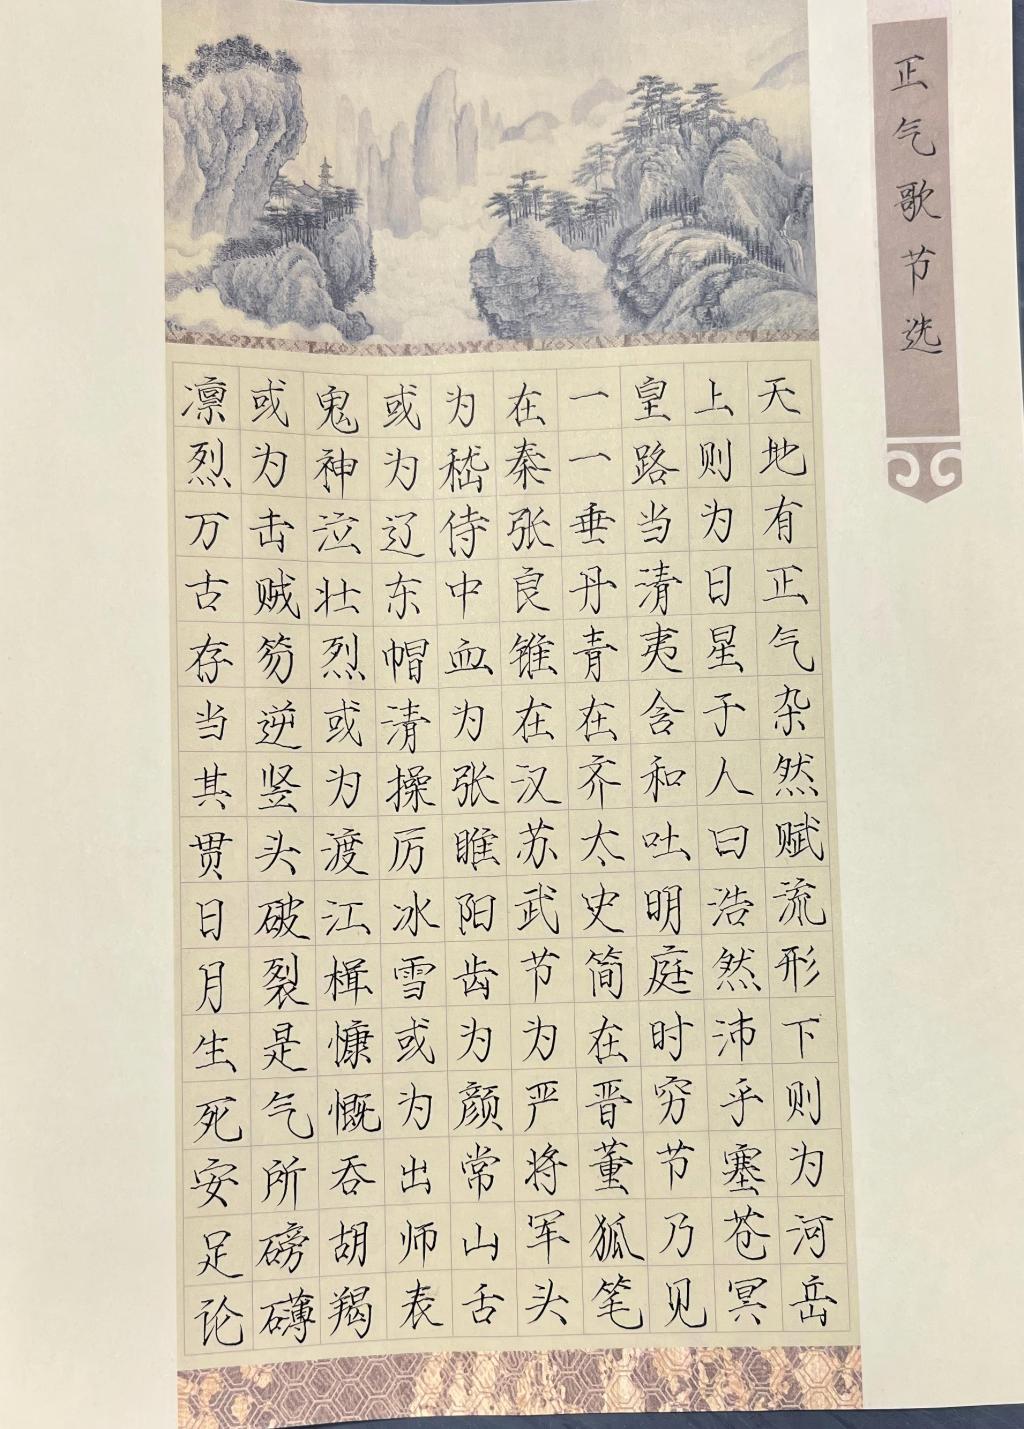 正气歌节选
天地有正气杂然赋流形下则为河岳
上则为日星于人曰浩然沛乎塞苍冥
皇路当清夷含和吐明庭时穷节乃见
一一垂丹青在齐太史简在晋董狐笔
在秦张良锥在汉苏武节为严将军头
为嵇侍中血为张睢阳齿为颜常山舌
或为辽东帽清操厉冰雪或为出师表
鬼神泣壮烈或为渡江楫慷慨吞胡羯
或为击贼笏逆竖头破裂是气所磅礴
凛烈万古存当其贯日月生死安足论